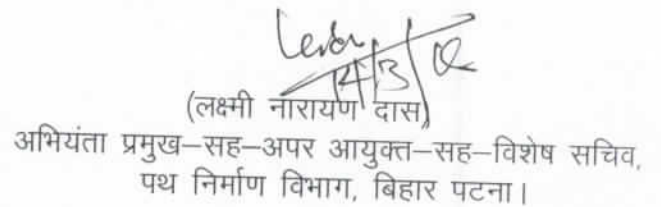 14/3
(लक्ष्मी नारायण दास)
अभियंता प्रमुख–सह–अपर आयुक्त–सह–विशेष सचिव,
पथ निर्माण विभाग, बिहार पटना।